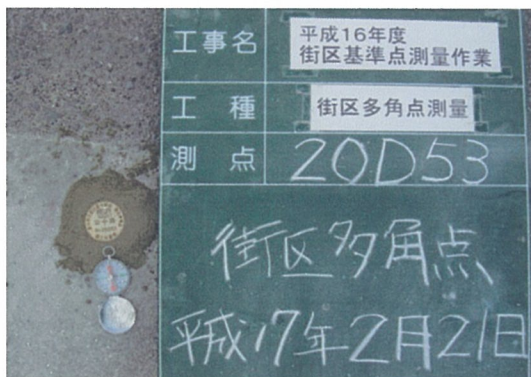 工事名 平成16年度
街区基準点測量作業
工種 街区多角点測量
測点 20D53
街区多角点
平成17年2月21日